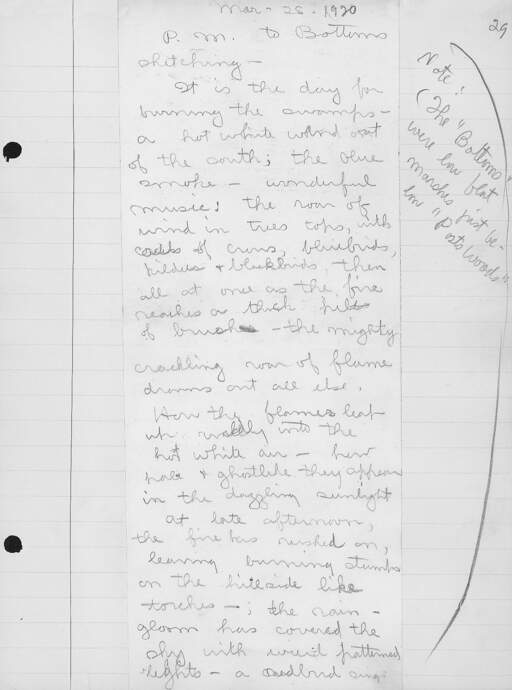 Mar - 28 - 1920
29
P. M. to Bottoms
sketching -
It is the day for
burning the swamps -
a hot white wind out
of the south; the blue
smoke - wonderful
music! the roar of
wind in trees tops, with
calls of crows, bluebirds,
killdees & blackbirds, then
all at once as the fire
reaches a thick pile
of brush - the mighty
crackling roar of flame
drowns out all else.
How the flames leap
up wildly into the
hot white air - how
pale & ghostlike they appear
in the dazzling sunlight
at late afternoon,
the fire has rushed on,
leaving burning stumps
on the hillside like
torches - ; the rain -
gloom has covered the
sky with weird patterned
lights - a redbird sings
Note!
(The "Bottoms"
were low flat
marshes just be-
low "Posts Woods"